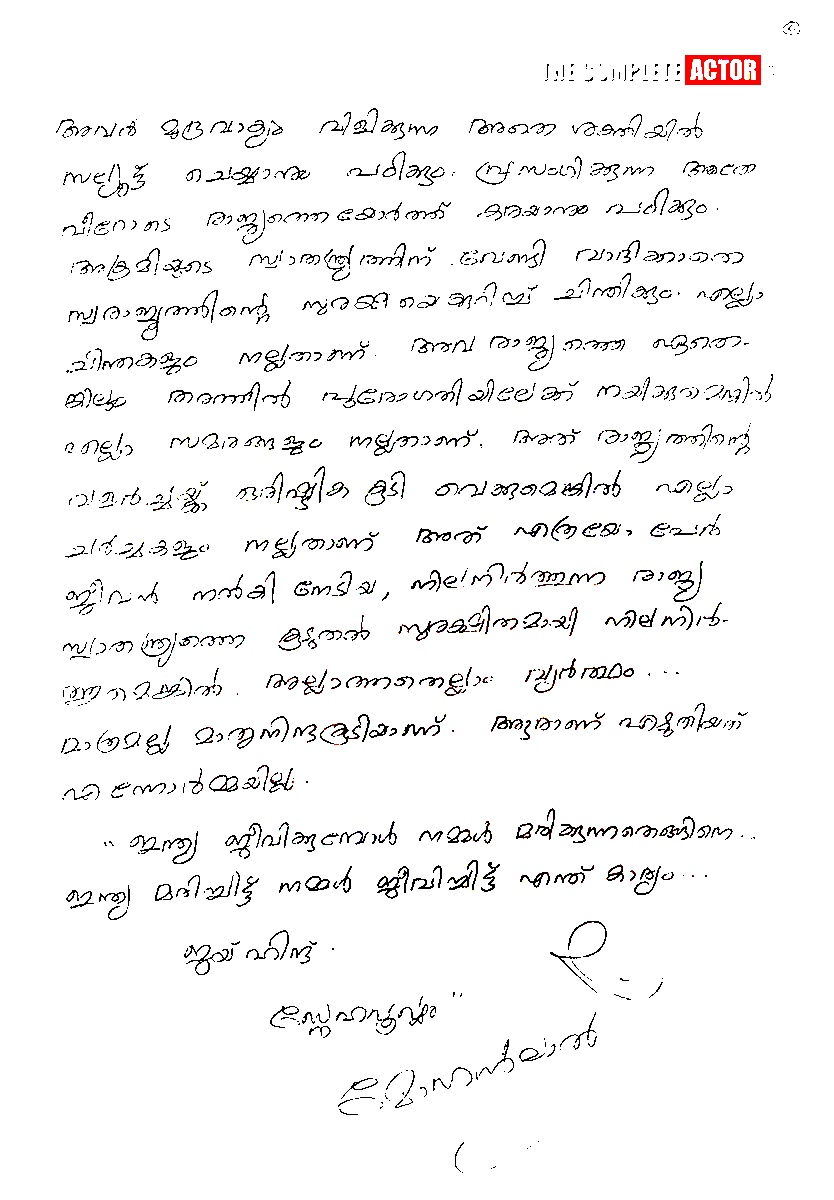 THE COMPLETE ACTOR
അവൻ മുദ്രവാക്യം വിളിക്കുന്ന അതെ ശക്തിയിൽ
സല്യൂട്ട് ചെയ്യാനും പഠിക്കും. പ്രസംഗിക്കുന്ന അതേ
വീറോടെ രാജ്യത്തെയോർത്ത് കരയാനും പഠിക്കും.
അക്രമിയുടെ സ്വാതന്ത്ര്യത്തിന് വേണ്ടി വാദിക്കാതെ
സ്വരാജ്യത്തിന്റെ സുരക്ഷയെകുറിച്ച് ചിന്തിക്കും. എല്ലാ
ചിന്തകളും നല്ലതാണ്. അവ രാജ്യത്തെ ഏതെ-
ങ്കിലും തരത്തിൽ പുരോഗതിയിലേക്ക് നയിക്കുമെങ്കിൽ
എല്ലാ സമരങ്ങളും നല്ലതാണ്. അത് രാജ്യത്തിന്റെ
വളർച്ചയ്ക്ക് ഒരിഷ്ടിക കൂടി വെക്കുമെങ്കിൽ എല്ലാ
ചർച്ചകളും നല്ലതാണ് അത് എത്രയോ പേർ
ജീവൻ നൽകി നേടിയ, നിലനിർത്തുന്ന രാജ്യ
സ്വാതന്ത്ര്യത്തെ കൂടുതൽ സുരക്ഷിതമായി നിലനിർ-
ത്തുമെങ്കിൽ. അല്ലാത്തതെല്ലാം വ്യർത്ഥം...
മാത്രമല്ല മാതൃനിന്ദകൂടിയാണ്. ആരാണ് എഴുതിയത്
എന്നോർമ്മയില്ല.
" ഇന്ത്യ ജീവിക്കുമ്പോൾ നമ്മൾ മരിക്കുന്നതെങ്ങിനെ...
ഇന്ത്യ മരിച്ചിട്ട് നമ്മൾ ജീവിച്ചിട്ട് എന്ത് കാര്യം...
ജയ് ഹിന്ദ്.
സ്നേഹപൂർവ്വം "
മോഹൻലാൽ